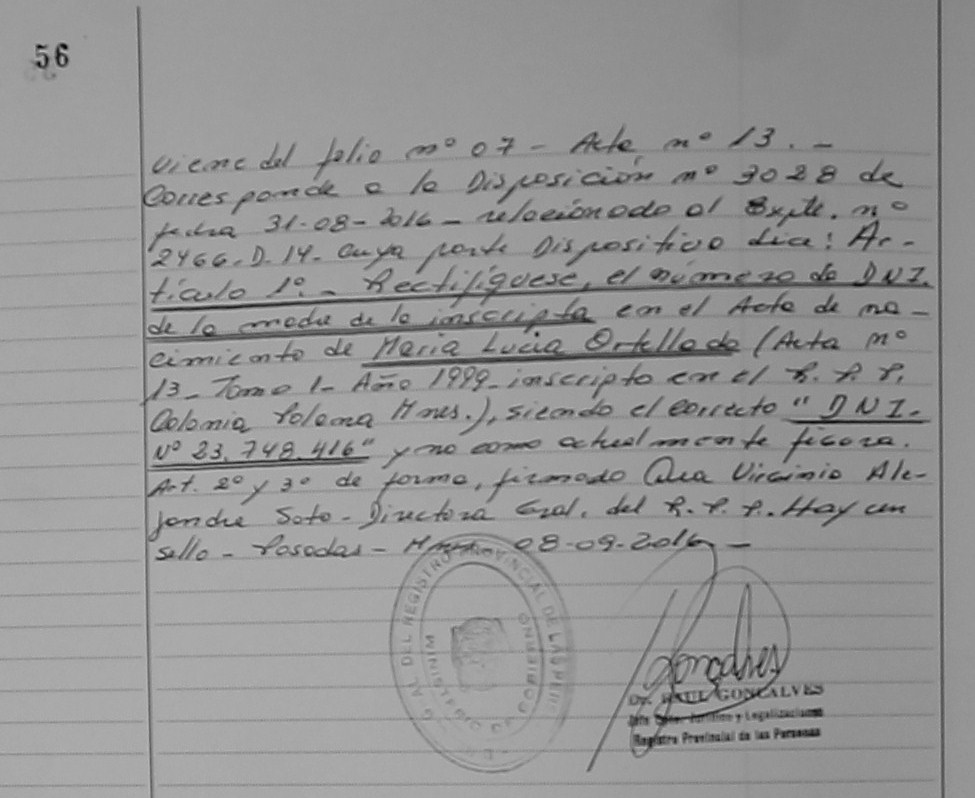 56
Viene del folio nº 07 - Acta nº 13. -
Corresponde a la Disposición nº 3028 de
fecha 31-08-2016 - relacionado al Expte. nº
2466-D.14- cuya parte Dispositiva dice: Ar-
tículo 1º - Rectifíquese, el número de DNI.
de la madre de la inscripta en el Acta de na-
cimiento de Maria Lucia Ortellado (Acta nº
13- Tomo 1- Año 1999- inscripta en el R. P. P.
Colonia Polana Mnes.), siendo el correcto "DNI-
Nº 23.748.416" y no como actualmente figura.
Art. 2º y 3º de forma, firmado Virginia Ale-
jandra Soto - Directora Gral. del R. P. P. Hay un
sello - Posadas - 08-09-2016 -
AL DEL REGISTRO PROVINCIAL DE LAS
MINISTERIO DE GOBIERNO
Goncalves
Dr. RAUL GONCALVES
Jefe Jurídico y Legalizaciones
Registro Provincial de las Personas